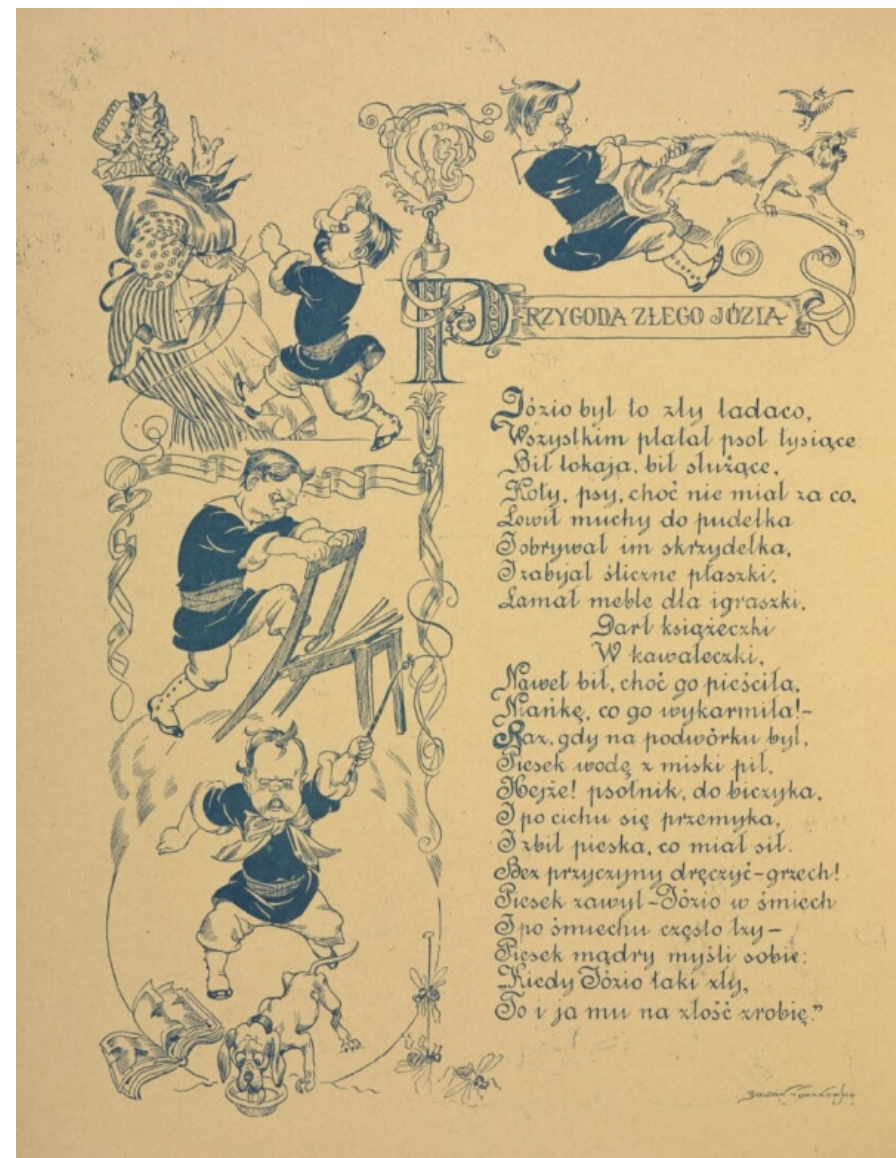 PRZYGODA ZŁEGO JÓZIA
Józio był to zły ladaco,
Wszystkim płatał psot tysiące
Bił lokaja, bił służące,
Koty, psy, choć nie miał za co,
Łowił muchy do pudełka
I obrywał im skrzydełka,
I zabijał śliczne ptaszki,
Łamał meble dla igraszki,
Darł książeczki
W kawałeczki,
Nawet bił, choć go pieściła,
Niańkę, co go wykarmiła!-
Raz, gdy na podwórku był,
Piesek wodę z miski pił.
Hejże! psotnik, do biczyka,
I po cichu się przemyka,
I zbił pieska, co miał sił.
Bez przyczyny dręczyć-grzech!
Piesek zawył-Józio w śmiech
I po śmiechu często łzy-
Piesek mądry myśli sobie:
"Kiedy Józio taki zły,
To i ja mu na złość zrobię."